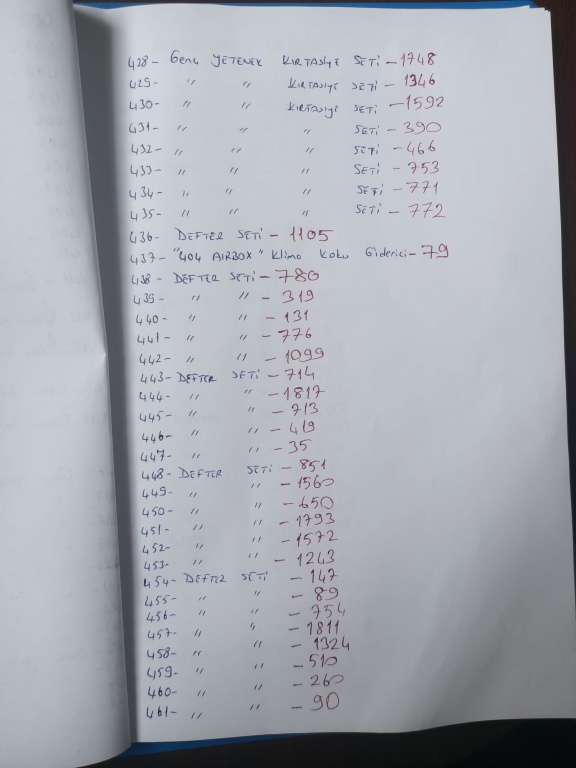 428- Genç YETENEK KIRTASİYE SETİ - 1748
429- " " KIRTASİYE SETİ - 1346
430- " " KIRTASİYE SETİ - 1592
431- " " " SETİ - 390
432- " " " SETİ - 466
433- " " " SETİ - 753
434- " " " SETİ - 771
435- " " " SETİ - 772
436- DEFTER SETİ - 1105
437- "404 AIRBOX" Klima Koku Giderici - 79
438- DEFTER SETİ - 780
439- " " - 319
440- " " - 131
441- " " - 776
442- " " - 1099
443- DEFTER SETİ - 714
444- " " - 1817
445- " " - 713
446- " " - 419
447- " " - 35
448- DEFTER SETİ - 851
449- " " - 1560
450- " " - 650
451- " " - 1793
452- " " - 1572
453- " " - 1243
454- DEFTER SETİ - 147
455- " " - 89
456- " " - 754
457- " " - 1811
458- " " - 1324
459- " " - 510
460- " " - 260
461- " " - 90